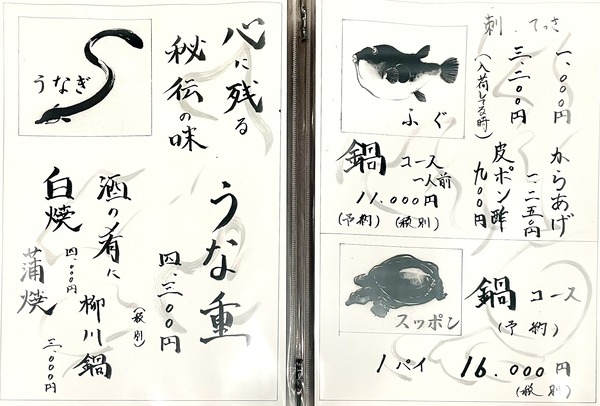 うなぎ
心に残る
秘伝の味
うな重
四.三〇〇円
(税別)
酒の肴に
柳川鍋
白焼
四.〇〇〇円
蒲焼
三.〇〇〇円
ふぐ
刺.てっさ
一.〇〇〇円
三.二〇〇円
(入荷してる時)
からあげ
一.二五〇円
皮ポン酢
九〇〇円
鍋 コース
一人前
11.000円
(予約) (税別)
スッポン
鍋 コース
(予約)
1パイ 16.000円
(税別)